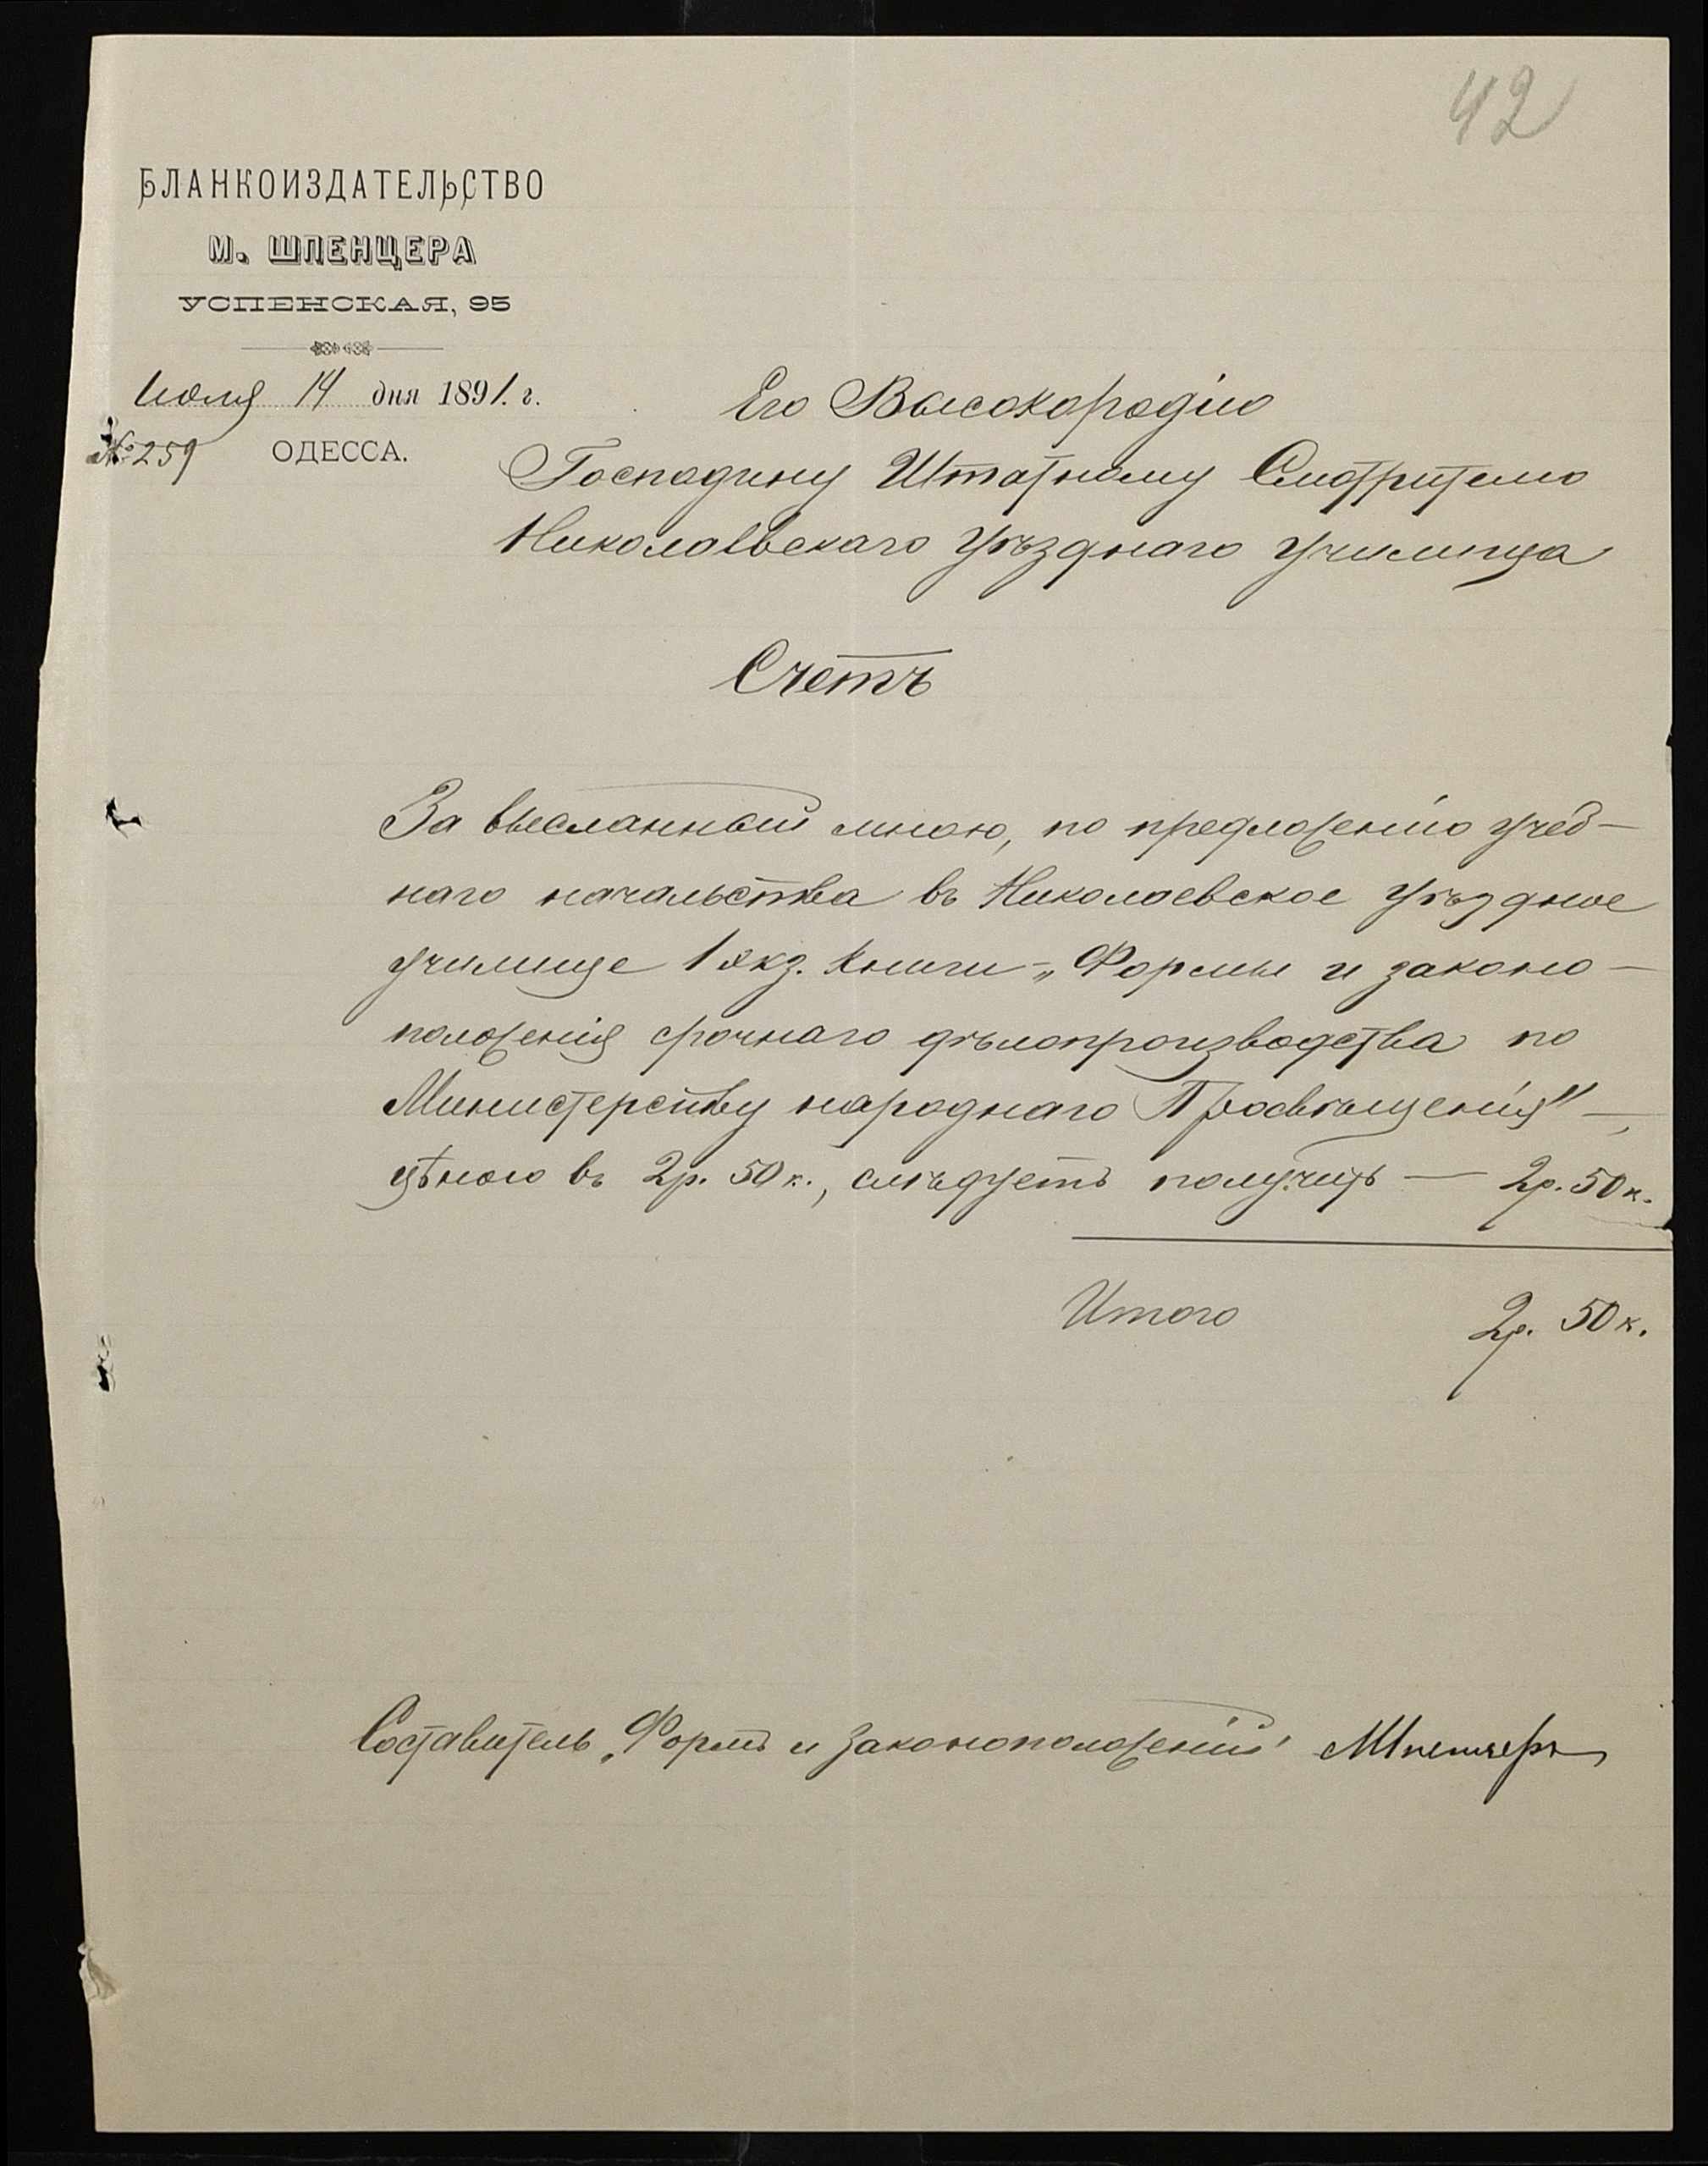 42
БЛАНКОИЗДАТЕЛЬСТВО
М. ШПЕНЦЕРА
УСПЕНСКАЯ, 95
Июля 14 дня 1891. г.
№ 259 ОДЕССА.
Его Высокородію
Господину Штатному Смотрителю
Николаевскаго Уѣзднаго Училища
Счетъ
За высланный мною, по предложенію Учеб-
наго начальства въ Николаевское Уѣздное
Училище 1 экз. книги - „Формы и законо-
положенія срочнаго дѣлопроизводства по
Министерству народнаго Просвѣщенія" —,
цѣною въ 2р. 50 к., слѣдуетъ получить — 2р. 50 к.
Итого 2р. 50 к.
Составитель „Формъ и Законоположеній" МШпенцеръ